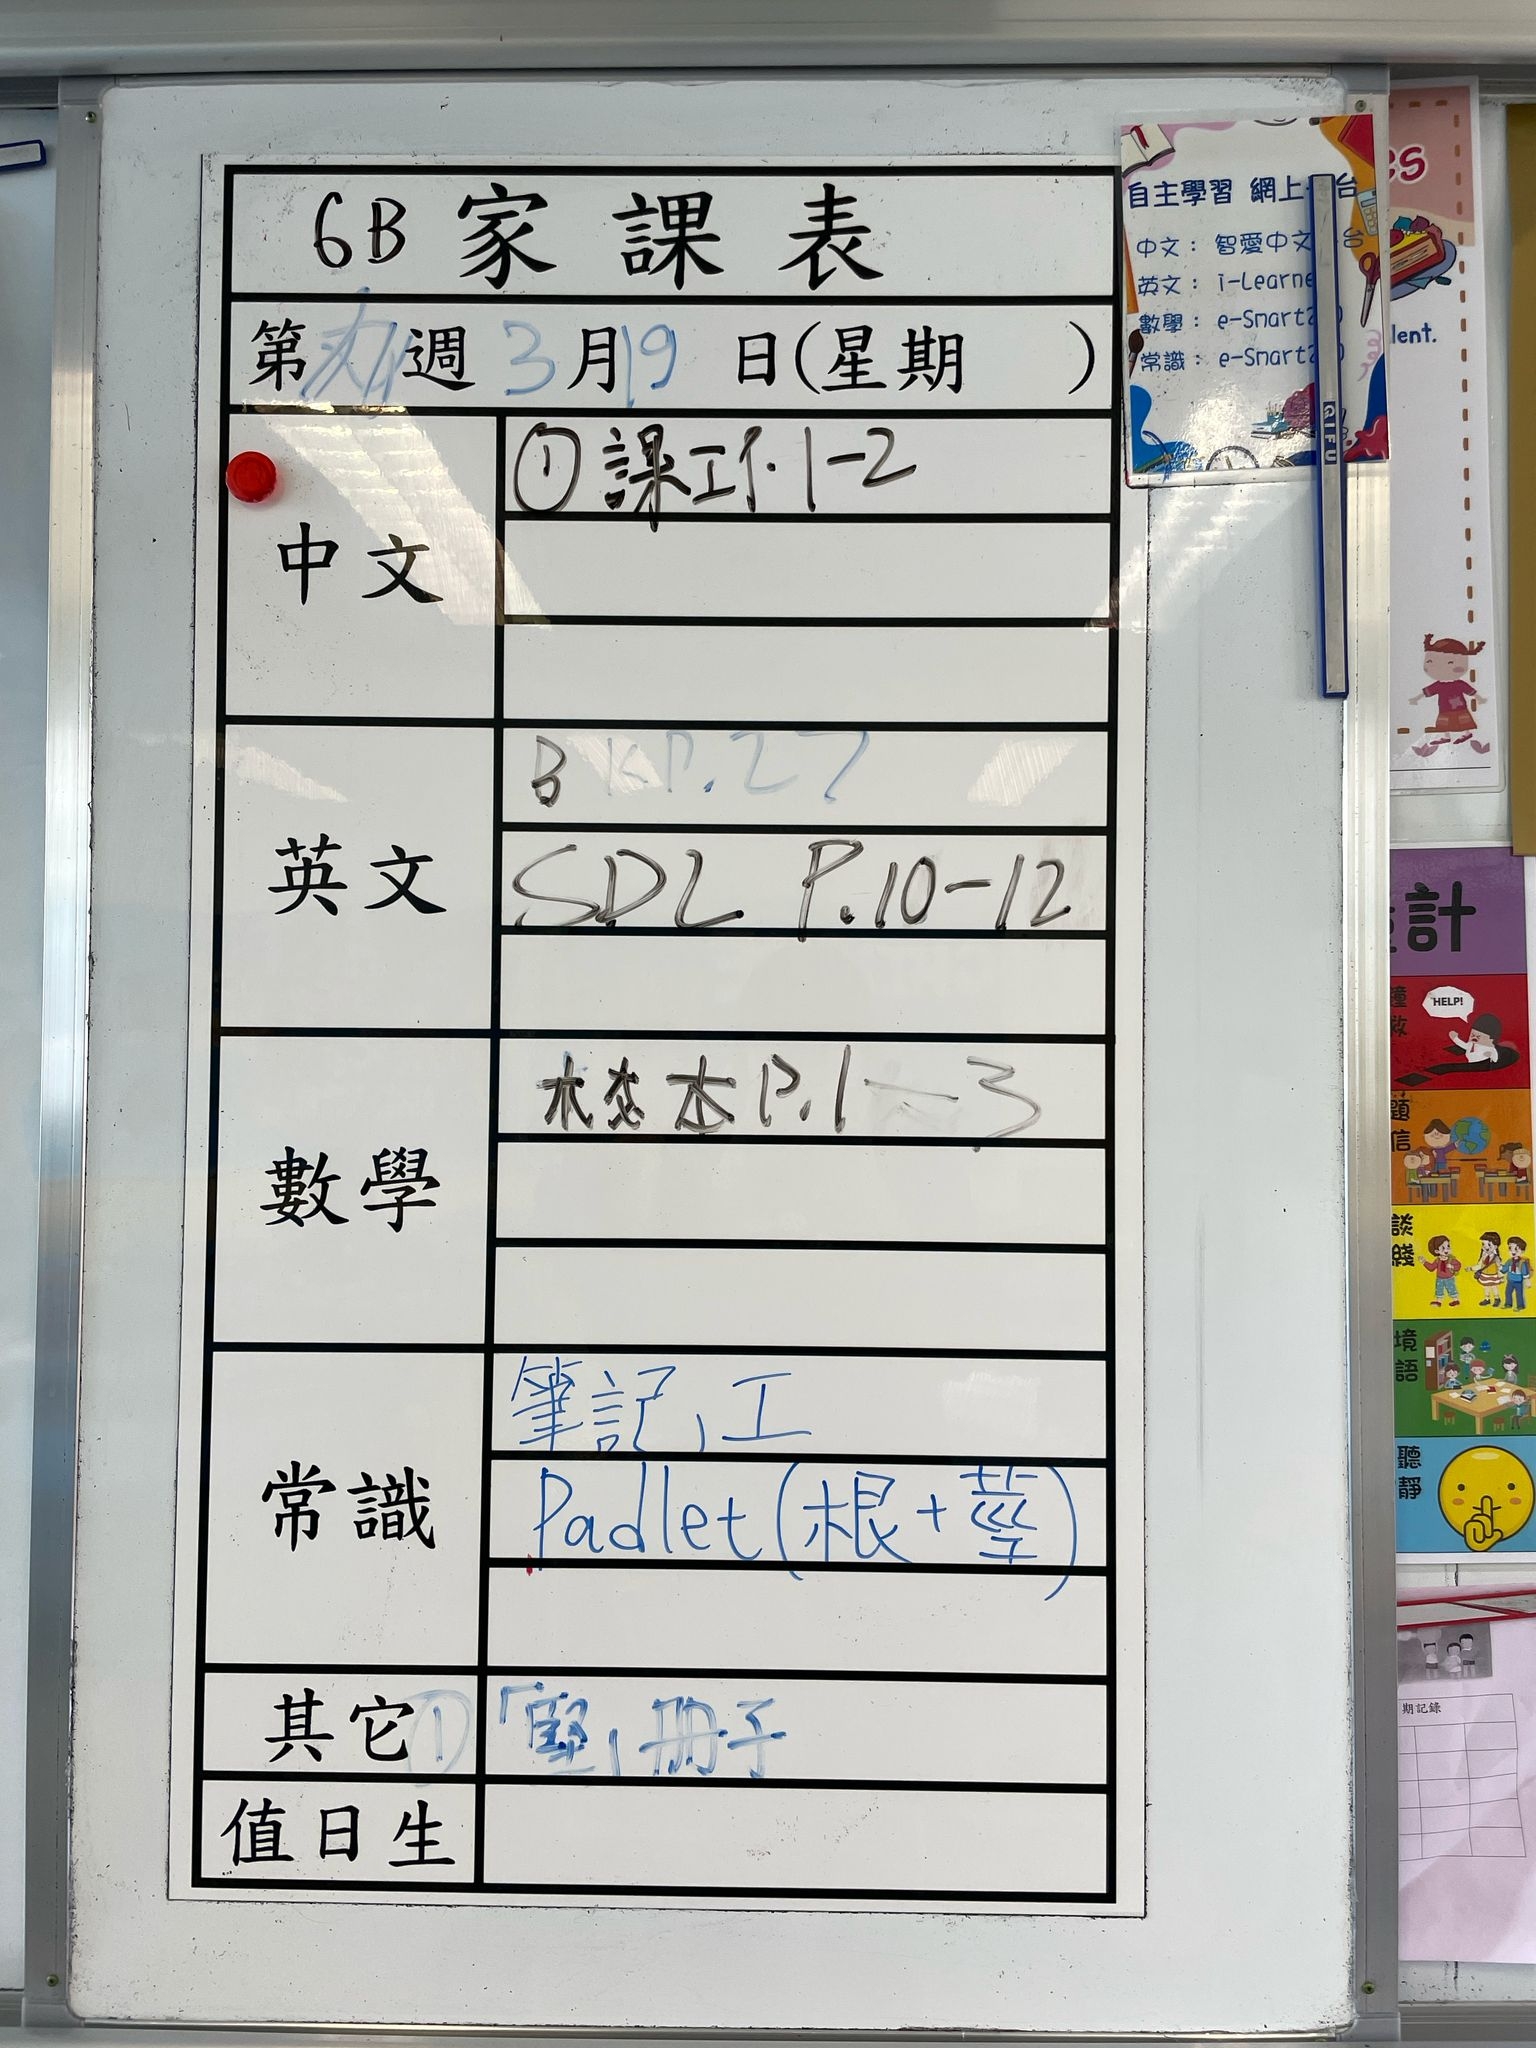 6B 家課表
第 週 3月19日(星期 )
中文
① 課工作 1-2
英文
BK P.27
SDL P.10-12
數學
校本 P.1-3
常識
筆記,工
Padlet(根+莖)
其它①
「堅」冊子
值日生
自主學習 網上 台
中文: 智愛中文 台
英文: i-Learne
數學: e-Smart
常識: e-Smart
QIFU
cs
lent.
計
HELP!
題
信
談
綫
境
語
聽
靜
期記錄